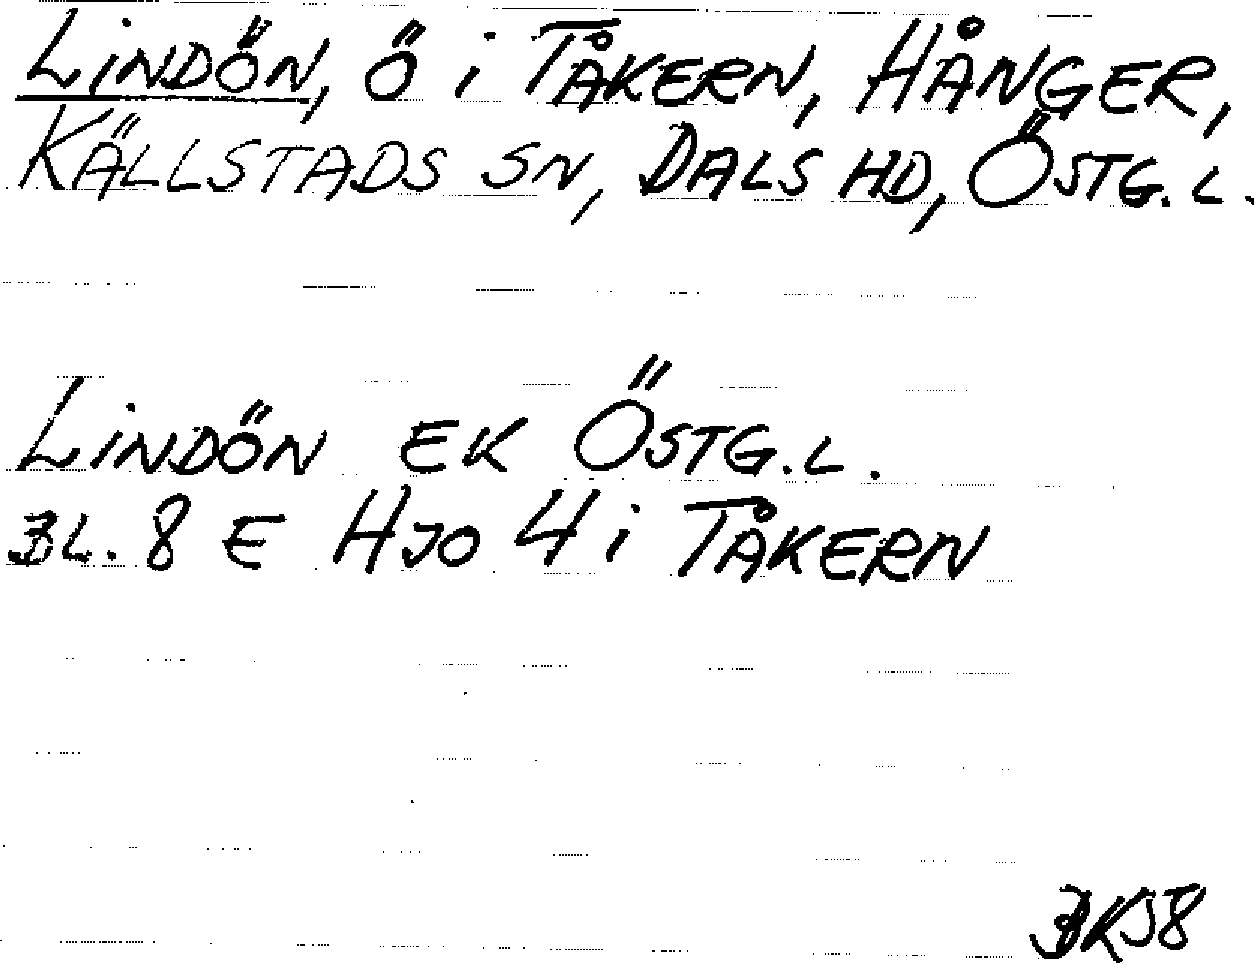 LINDÖN, Ö i TÅKERN, HÅNGER,
KÄLLSTADS SN, DALS HD, ÖSTG. L.
LINDÖN EK ÖSTG. L.
BL. 8 E HJO 4 i TÅKERN